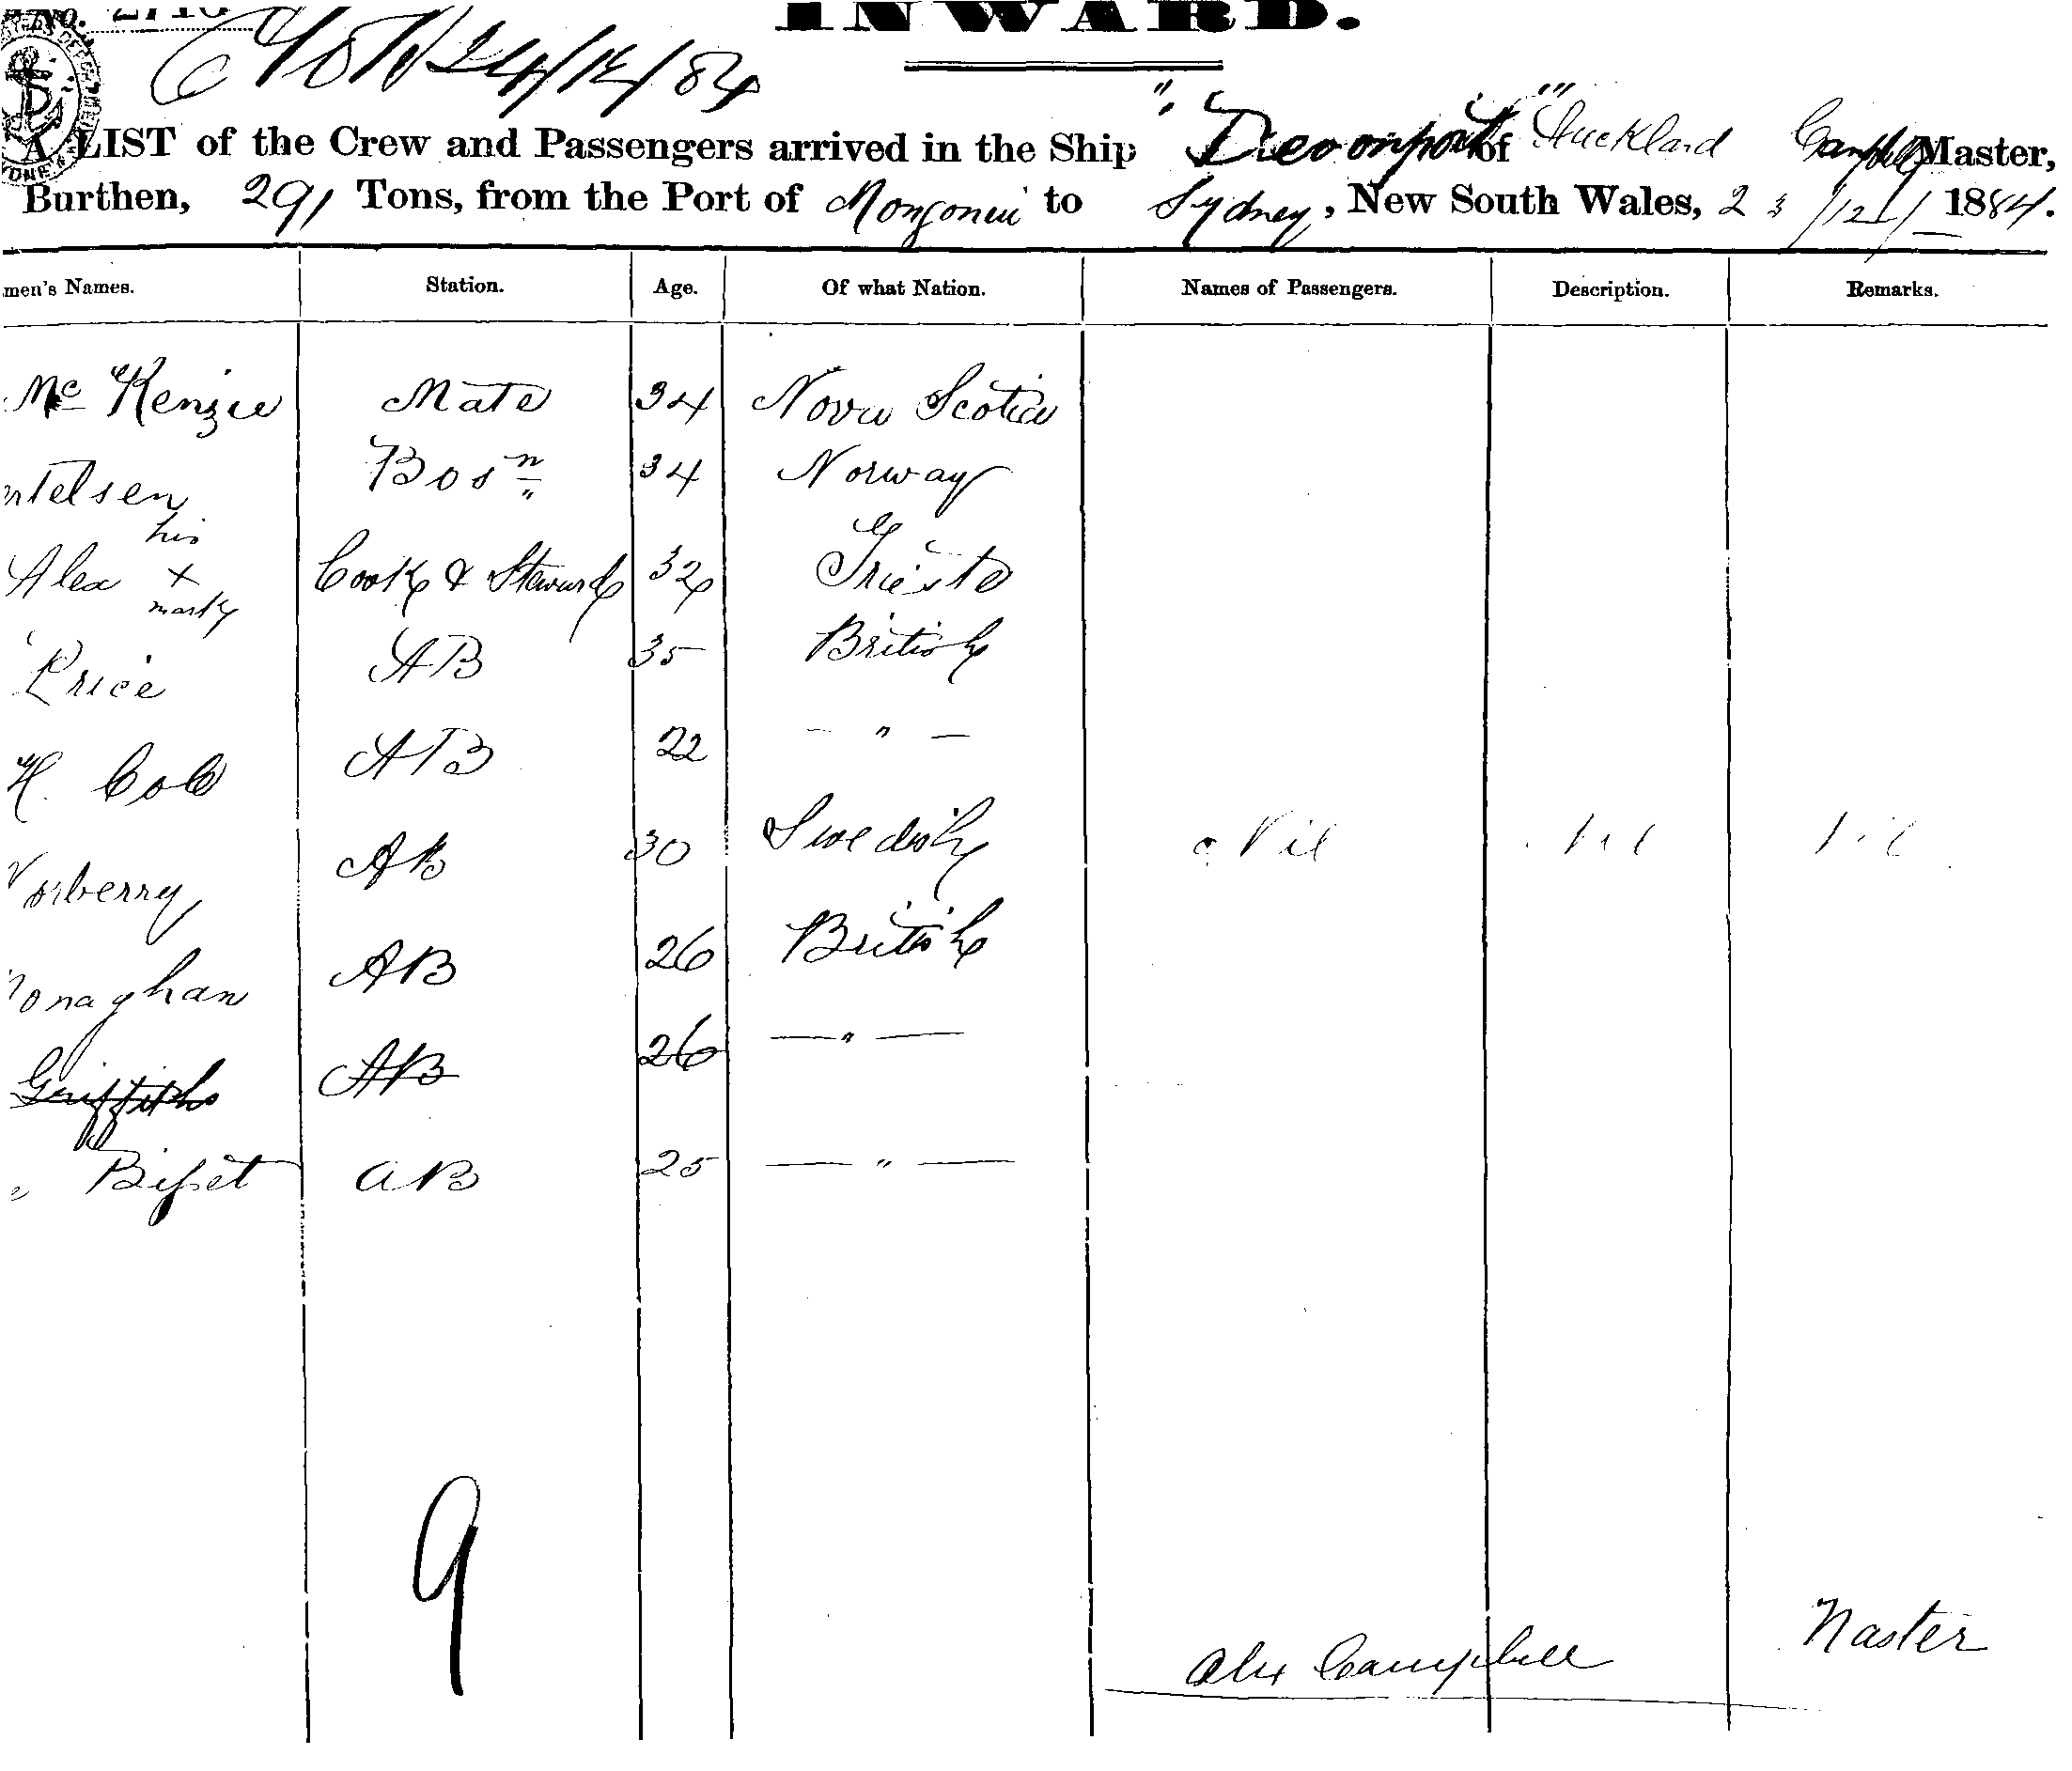 No. 2718
INWARD.
24/12/84
A LIST of the Crew and Passengers arrived in the Ship "Devonport" of Auckland Campbell Master,
Burthen, 291 Tons, from the Port of Mongonui to Sydney, New South Wales, 23/12/1884.
men's Names. Station. Age. Of what Nation. Names of Passengers. Description. Remarks.
Mc Kenzie Mate 34 Nova Scotia
ntelsen Bosn 34 Norway
his
Alex x Cook & Steward 32 Trieste
mark
Price AB 35 British
H. Cole AB 22 — " —
Norberry AB 30 Swedish Nil Nil Nil
Monaghan AB 26 British
Griffiths AB 26 — " —
Bisset AB 25 — " —
9
Alex Campbell Master